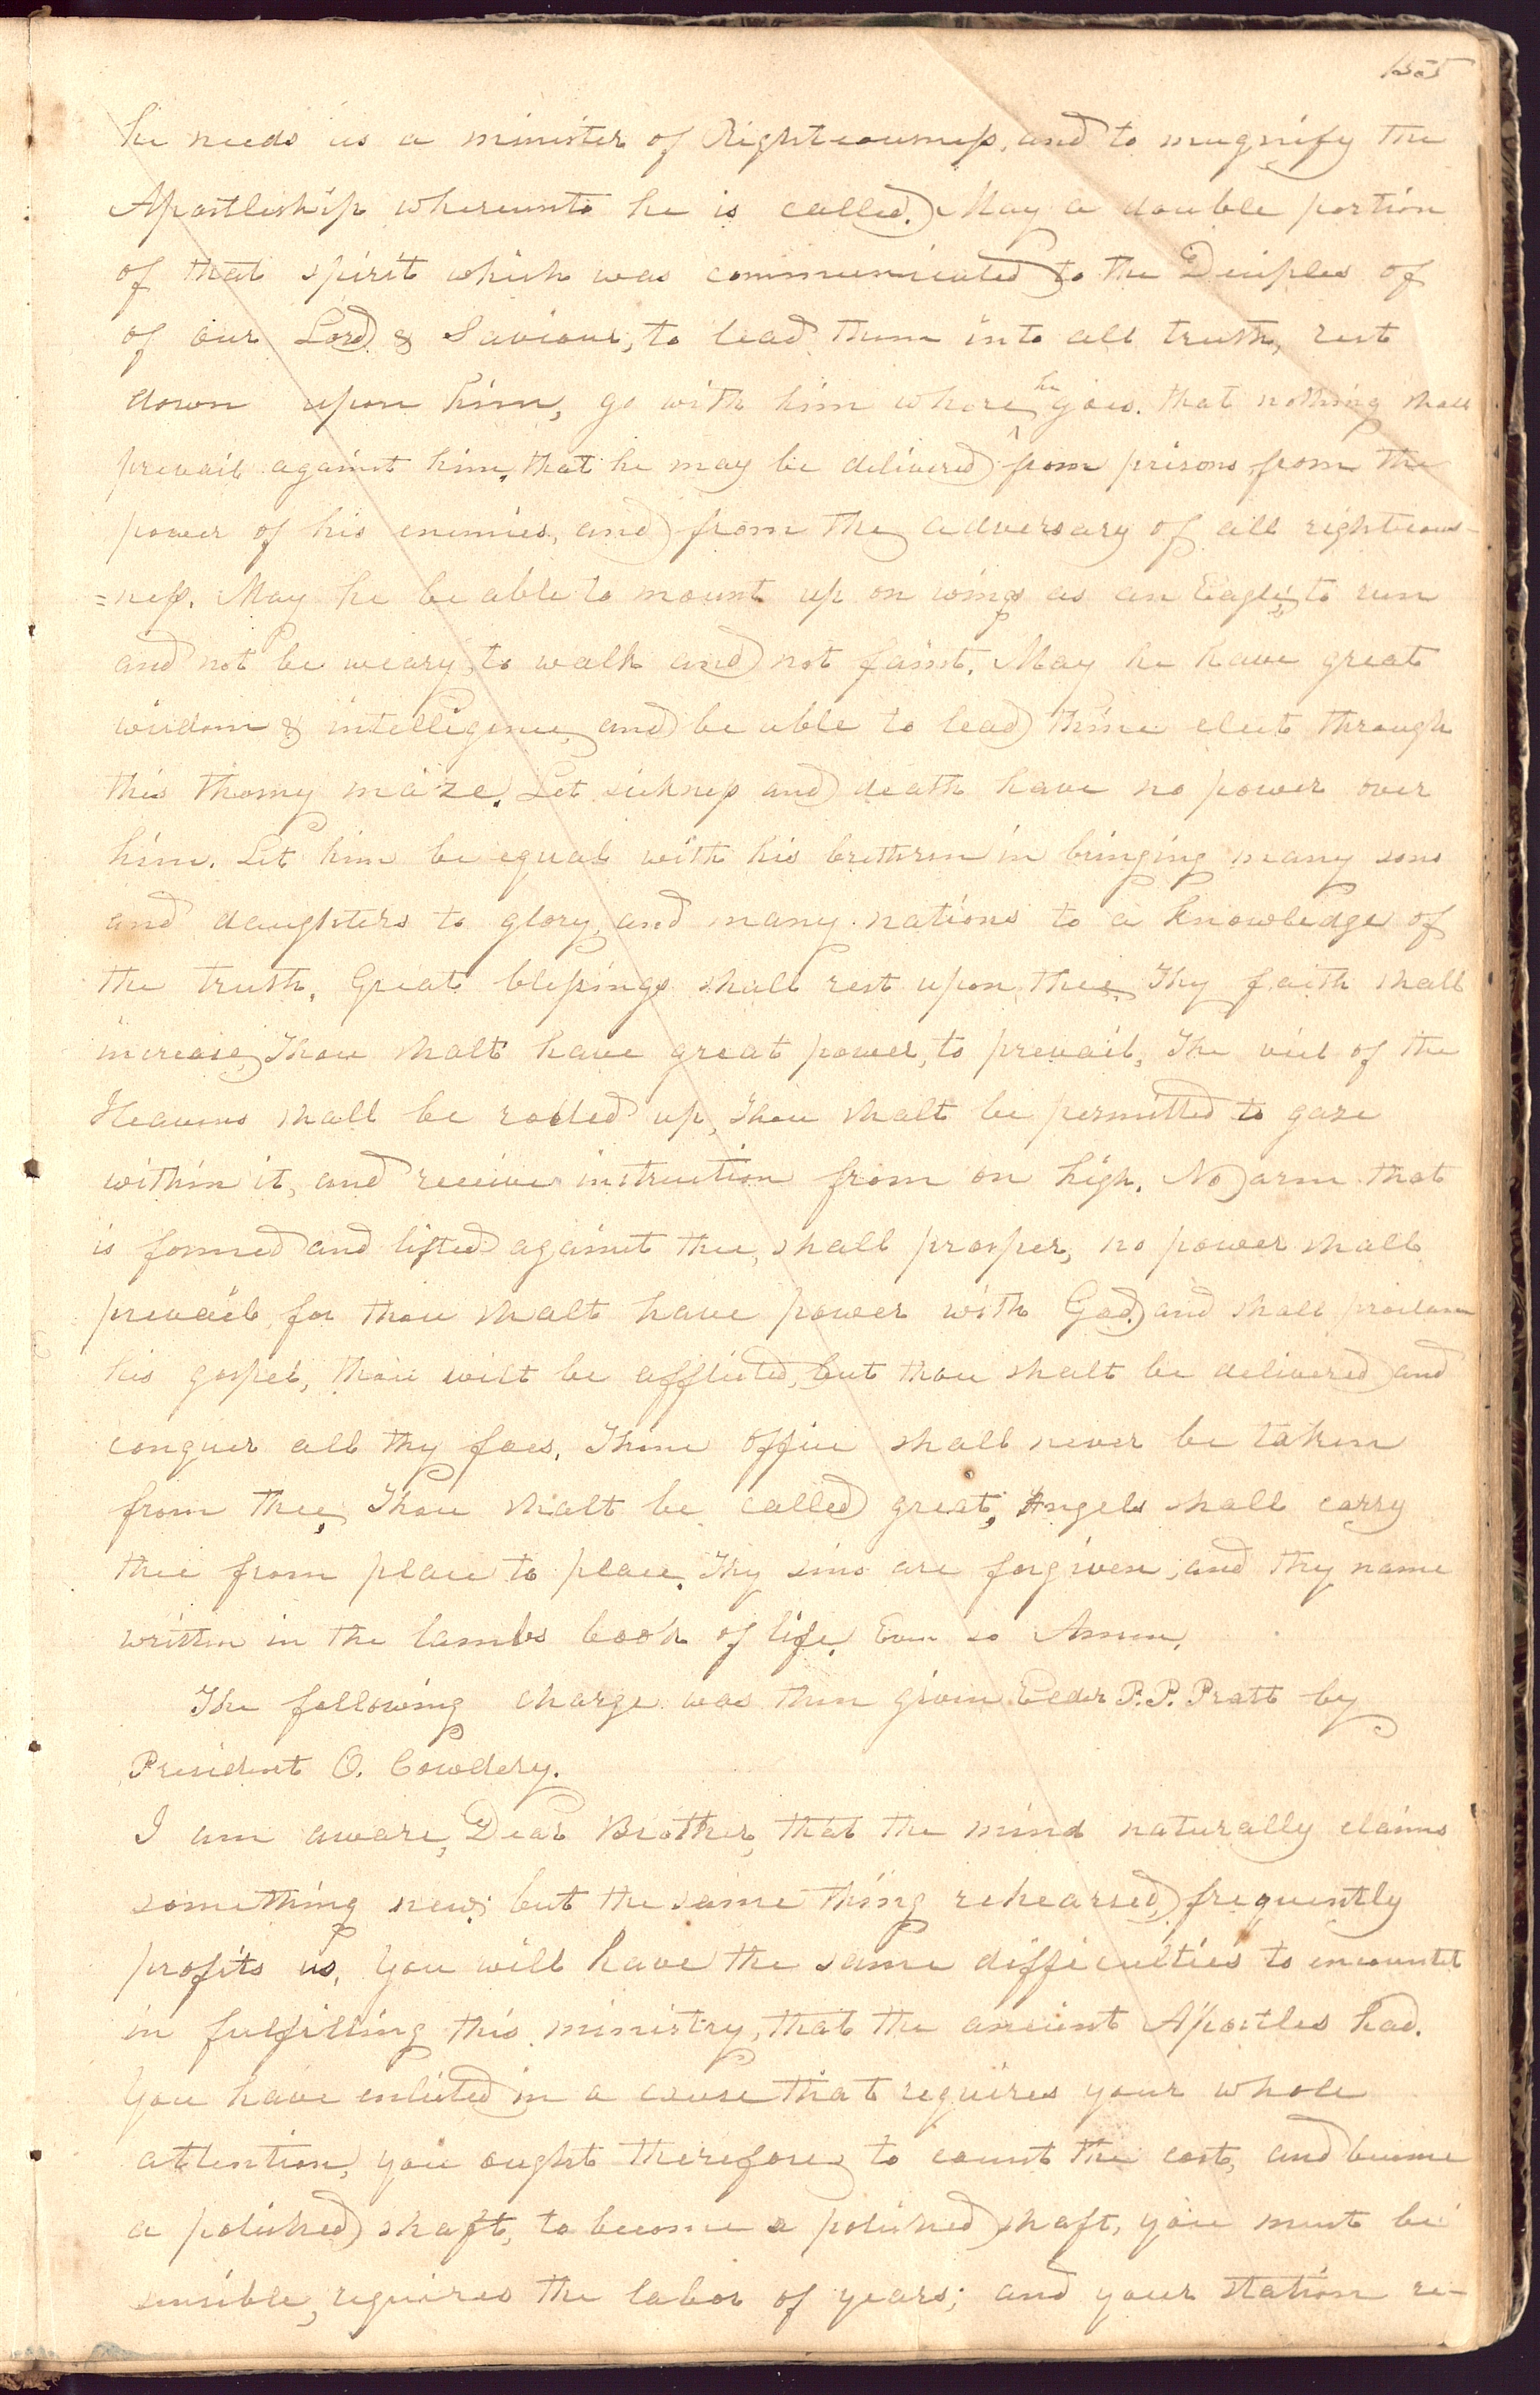 155
he needs as a minister of Righteousness, and to magnify the
Apostleship whereunto he is called. May a double portion
of that spirit which was communicated to the Deciples of
of our Lord & Saviour, to lead them into all truth, rest
down upon him, go with him where he goes. that nothing shall
prevail against him, that he may be delivered from prisons, from the
power of his enemies, and from the adversary of all righteous-
=ness. May he be able to mount up on wings as an Eagle; to run
and not be weary, to walk and not faint. May he have great
wisdom & intelligence, and be able to lead thine elect through
this thorny maze. Let sickness and death have no power over
him. Let him be equal with his brethren in bringing many sons
and daughters to glory, and many nations to a knowledge of
the truth. Great blessings shall rest upon thee. Thy faith shall
increase, Thou shalt have great power, to prevail, The veil of the
Heavens shall be rolled up, Thou shalt be permitted to gaze
within it, and receive instruction from on high. No arm that
is formed and lifted against thee, shall prosper, no power shall
prevail, for thou shalt have power with God, and shall proclaim
his gospel, thou wilt be afflicted, but thou shalt be delivered and
conquer all thy foes. Thine office shall never be taken
from thee, Thou shalt be called great, Angels shall carry
thee from place to place. Thy sins are forgiven, and thy name
written in the lambs book of life. Even so Amen.
The following charge was then given Elder P. P. Pratt by
President O. Cowdery.
I am aware, Dear Brother, that the mind naturally claims
something new; but the same thing rehearsed, frequently
profits us. You will have the same difficulties to encounter
in fulfilling this ministry, that the ancient Apostles had.
You have enlisted in a cause that requires your whole
attention, you ought therefore, to count the cost, and become
a polished shaft, to become a polished shaft, you must be
sensible, requires the labor of years; and your station re-